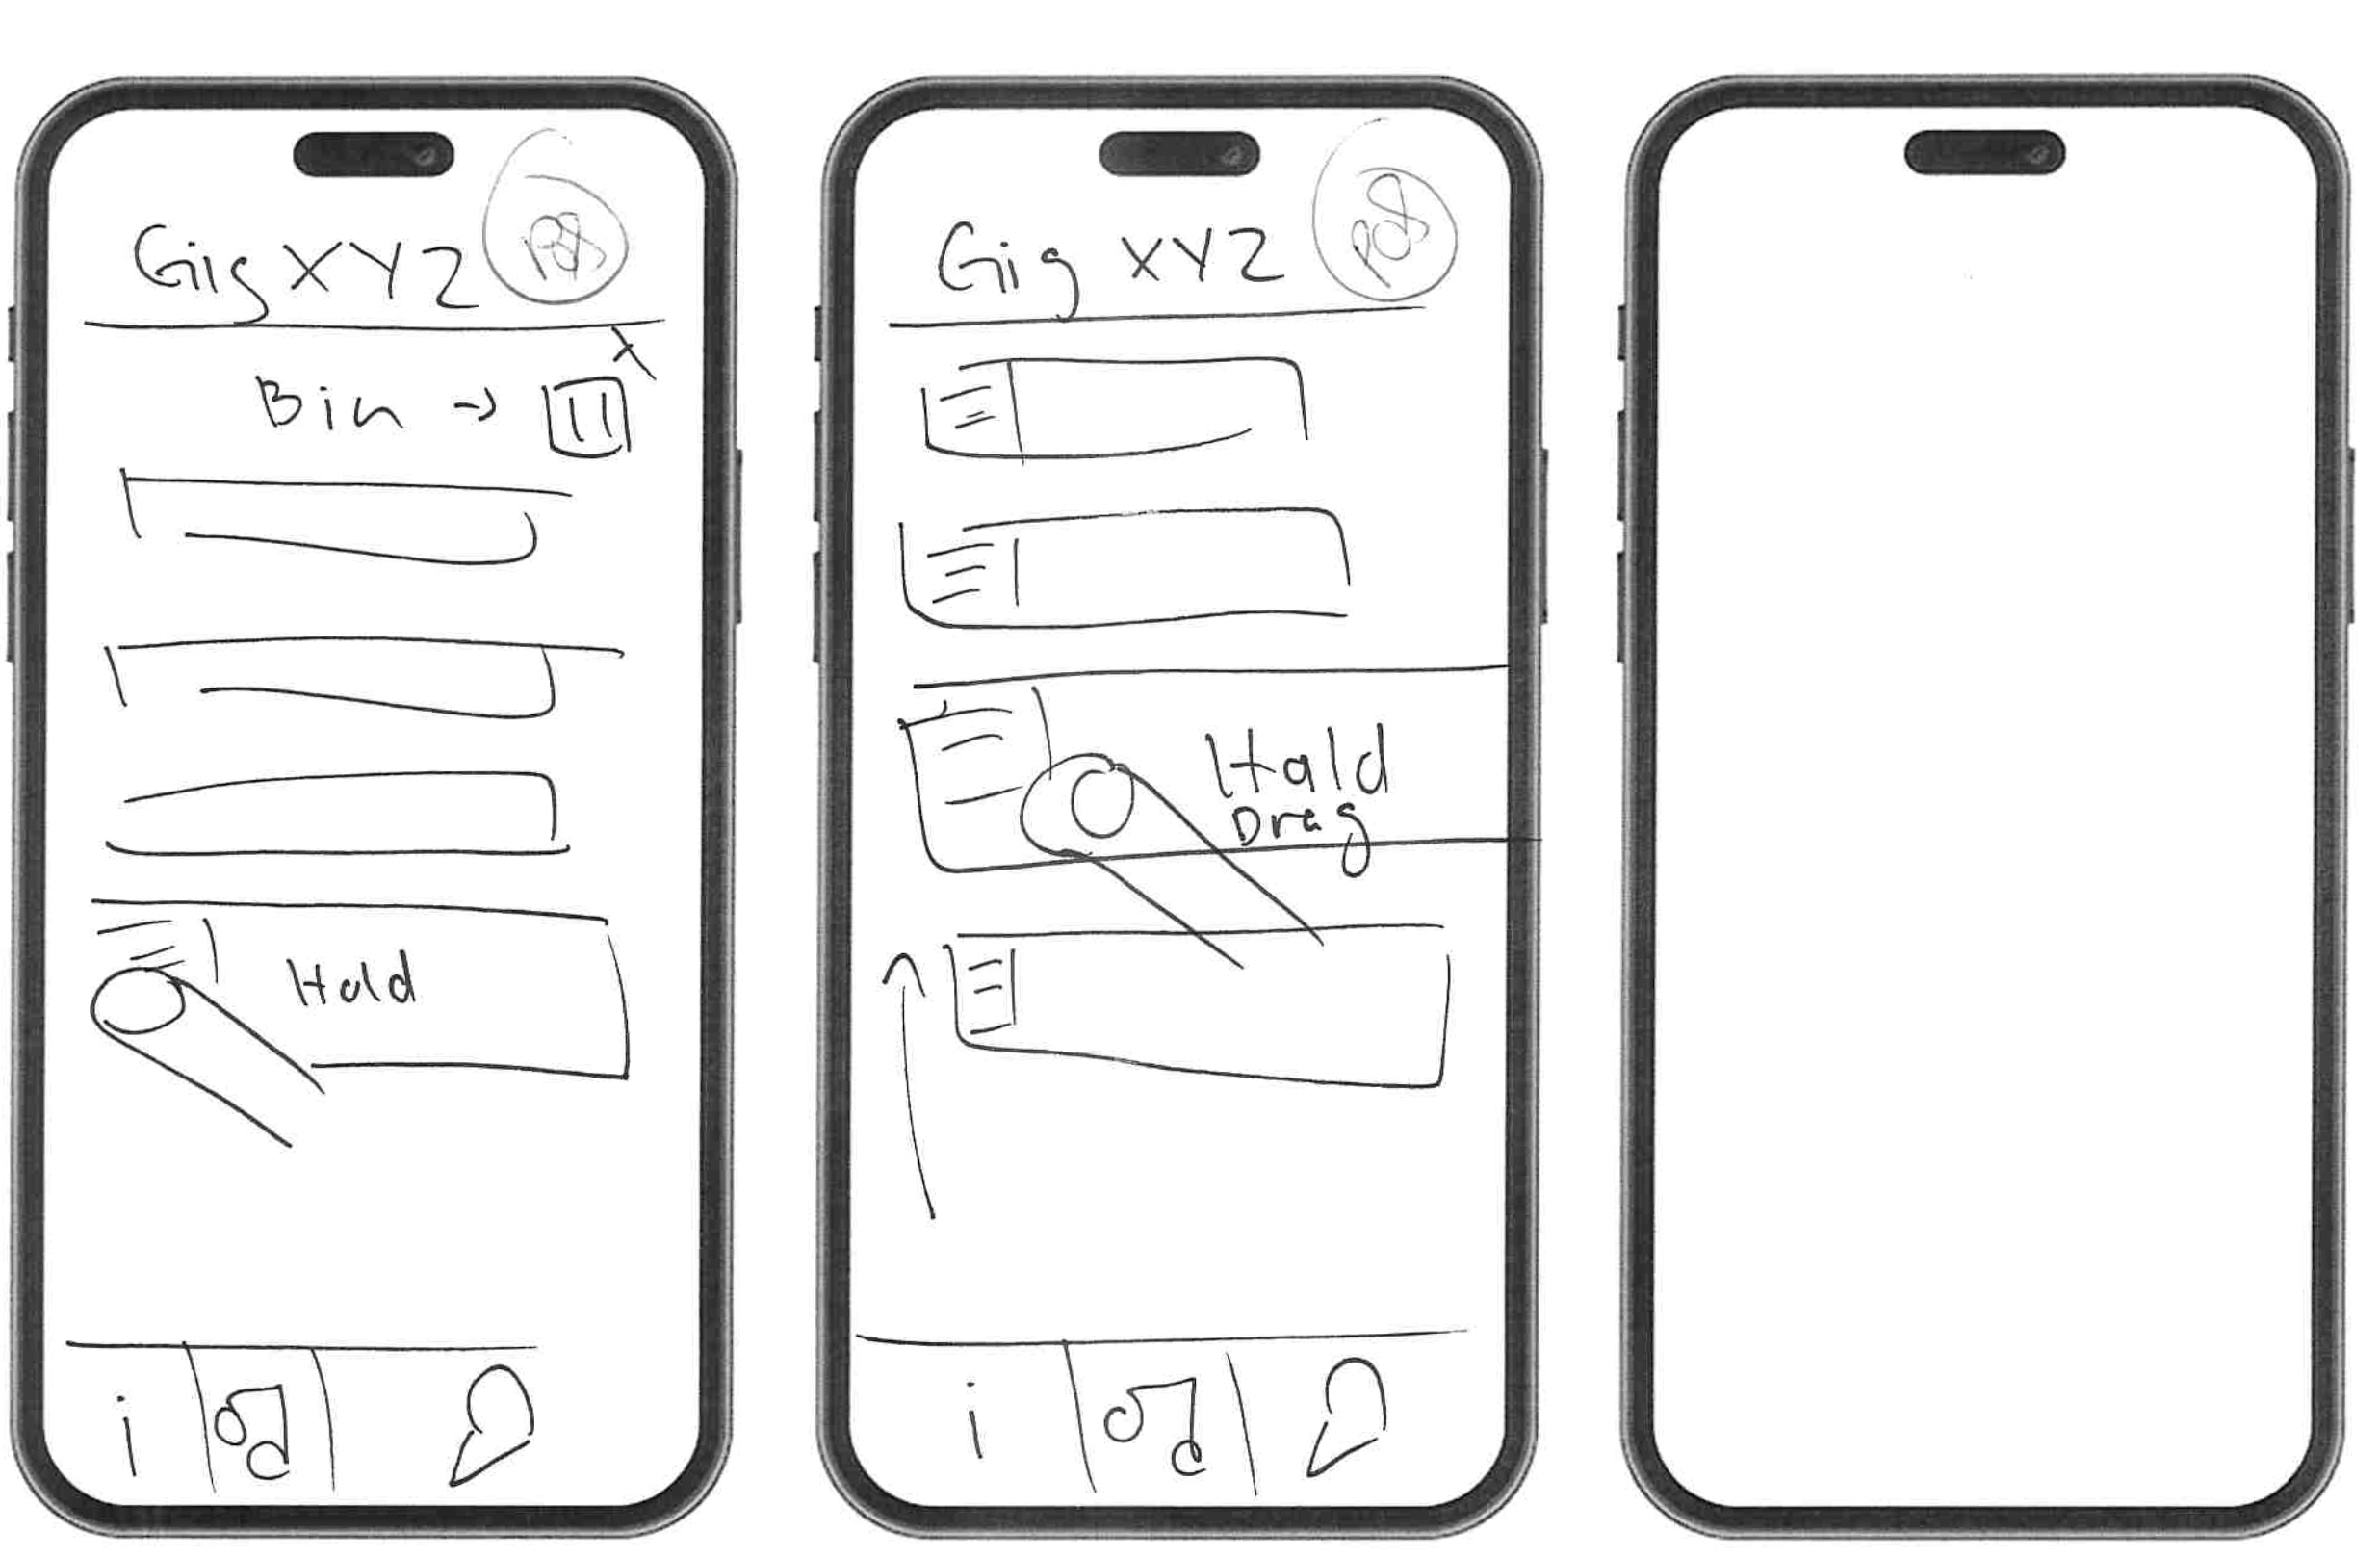 Gig XYZ
Bin →
Hold
i
Gig XYZ
Hold
Drag
i